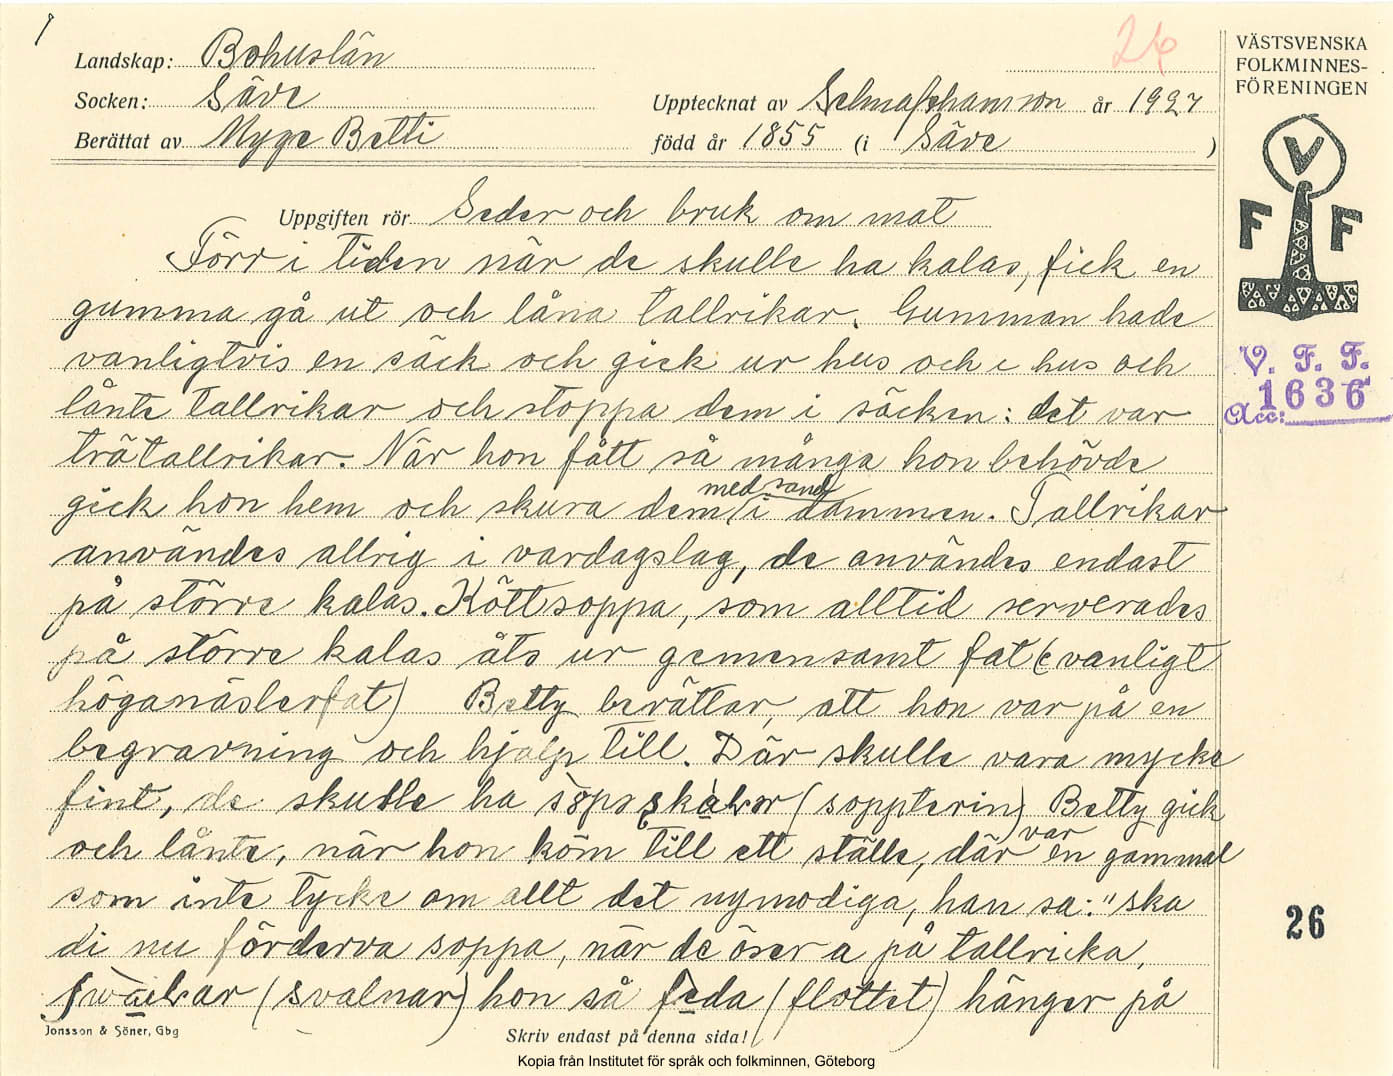 Landskap: Bohuslän
Socken: Säve
Berättat av Myge Betti
26
Upptecknat av Selma Johansson år 1927
född år 1855 (i Säve )
VÄSTSVENSKA
FOLKMINNES-
FÖRENINGEN
V
F F
V. F. F.
Acc: 1636
Uppgiften rör Seder och bruk om mat
Förr i tiden när de skulle ha kalas, fick en
gumma gå ut och låna tallrikar. Gumman hade
vanligtvis en säck och gick ur hus och i hus och
lånte tallrikar och stoppa dem i säcken: det var
trätallrikar. När hon fått så många hon behövde
gick hon hem och skura dem med sand i dammen. Tallrikar
användes allrig i vardagslag, de användes endast
på större kalas. Köttsoppa, som alltid serverades
på större kalas åts ur gemensamt fat (vanligt
höganäslerfat) Betty berättar, att hon var på en
begravning och hjalp till. Där skulle vara mycke
fint, de skulle ha (soppterin) Betty gick
och lånte, när hon kom till ett ställe, där var en gammal
som inte tycke om allt det nymodiga, han sa: "ska
di nu förderva soppa, när de öser a på tallricka,
(svalnar) hon så feda (flottet) hänger på
26
Jonsson & Söner, Gbg
Skriv endast på denna sida!
Kopia från Institutet för språk och folkminnen, Göteborg